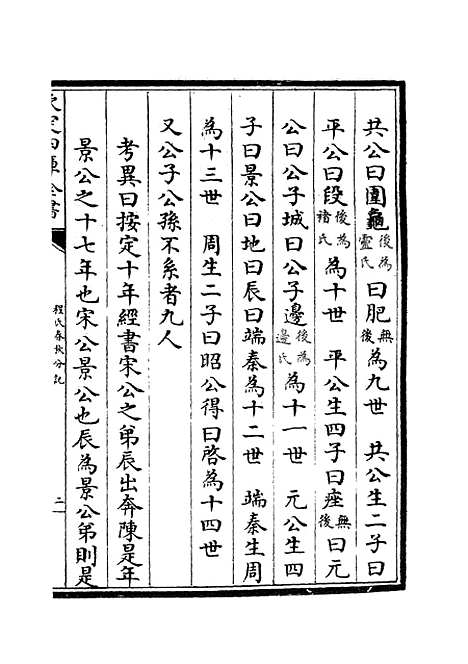 共公曰圍龜後為靈氏曰肥無後為九世　共公生二子曰
平公曰段後為褚氏為十世　平公生四子曰痤無後曰元
公曰公子城曰公子邊後為邊氏為十一世　元公生四
子曰景公曰地曰辰曰端秦為十二世　端秦生周
為十三世　周生二子曰昭公得曰啓為十四世
又公子公孫不系者九人
考異曰按定十年經書宋公之弟辰出奔陳是年
景公之十七年也宋公景公也辰為景公弟則是
欽定四庫全書
程氏春秋分記
二